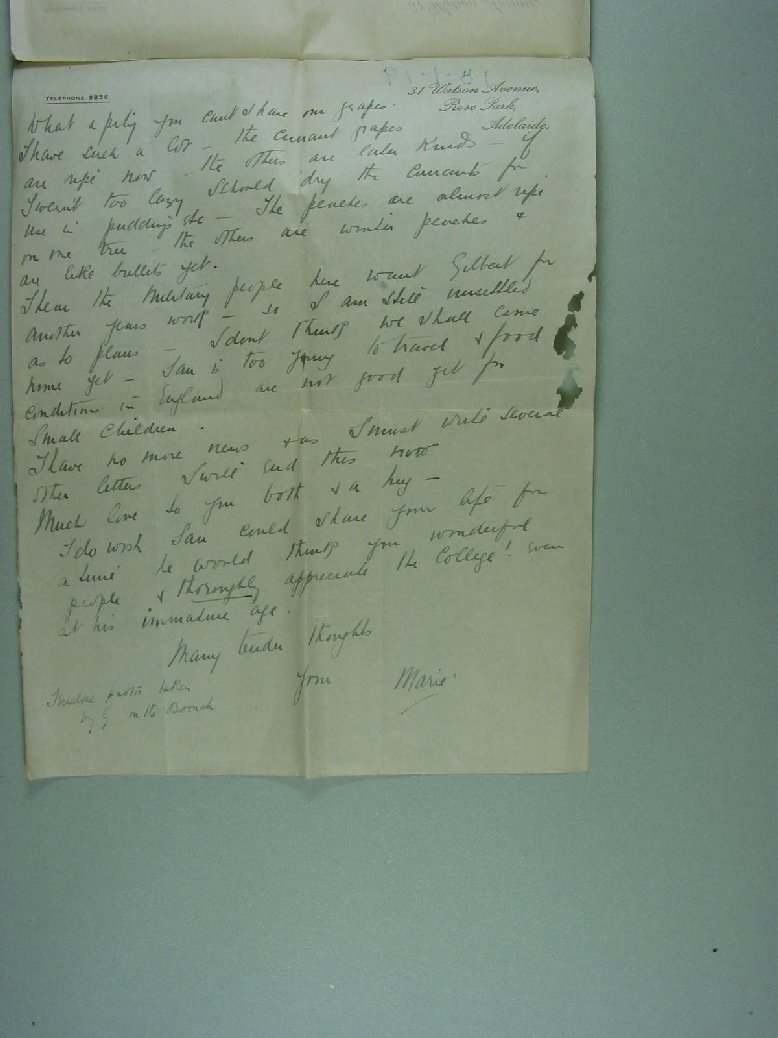 15·1·19
TELEPHONE 3956
31 Watson Avenue,
Rose Park,
Adelaide.
What a pity you cant share our grapes.
I have such a lot – the currant grapes
are ripe now – the others are later kinds – if
I wernt too lazy I should dry the currants for
use in puddings etc – The peaches are almost ripe
on one tree the others are winter peaches &
are like bullets yet.
I hear the Military people here want Gilbert for
another years work – so I am still unsettled
as to plans – I dont think we shall come
home yet – Ian is too young to travel & food
conditions in England are not good yet for
small children.
I have no more news & as I must write several
other letters I will end this now
Much love to you both & a hug –
I do wish Ian could share your life for
a time he would think you wonderful
people & thoroughly appreciate the College! even
at his immature age.
Many tender thoughts
Your Marie
photo taken
by G on the